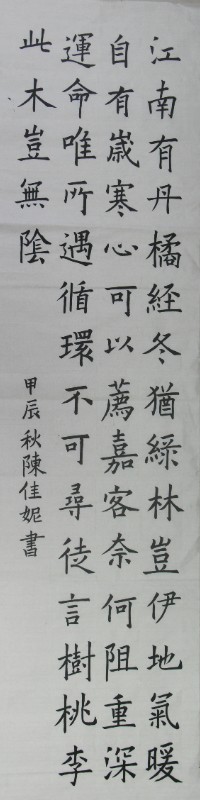 江南有丹橘經冬猶綠林豈伊地氣暖
自有嵗寒心可以薦嘉客奈何阻重深
運命唯所遇循環不可尋徒言樹桃李
此木豈無陰
甲辰秋陳佳妮書